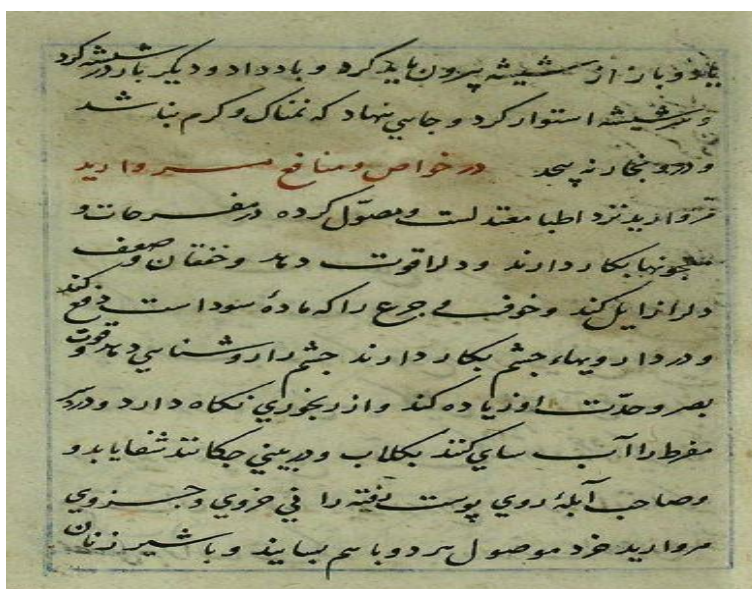 یابد و باز از شیشه بیرون باید کرد و باد داد و دیگر بار در شیشه کرد
و سر شیشه استوار کرد و جایی نهاد که نمناک و گرم نباشد
و درو بخار نه پیچد در خواص و منافع مروارید
مروارید نزد اطبا معتدلست و مصوّل کرده در مفرحات و
معجونها بکار دارند و دلرا قوت دهد و خفقان و ضعف
دلرا زایل کند و خوف و جزع را که مادهٔ سوداست دفع کند
و در داروهاء چشم بکار دارند چشم را روشنایی دهد و قوت
بصر و حدّت او زیاده کند و از رنجوری نگاه دارد و درد سر
مفرط را آب سای کنند بگلاب و در بینی چکانند شفا یابد و
و صاحب آبلهٔ روی پوست را فی خروی و جزوی
مروارید خرد موصول هر دو باهم بسایند و با شیر زنان